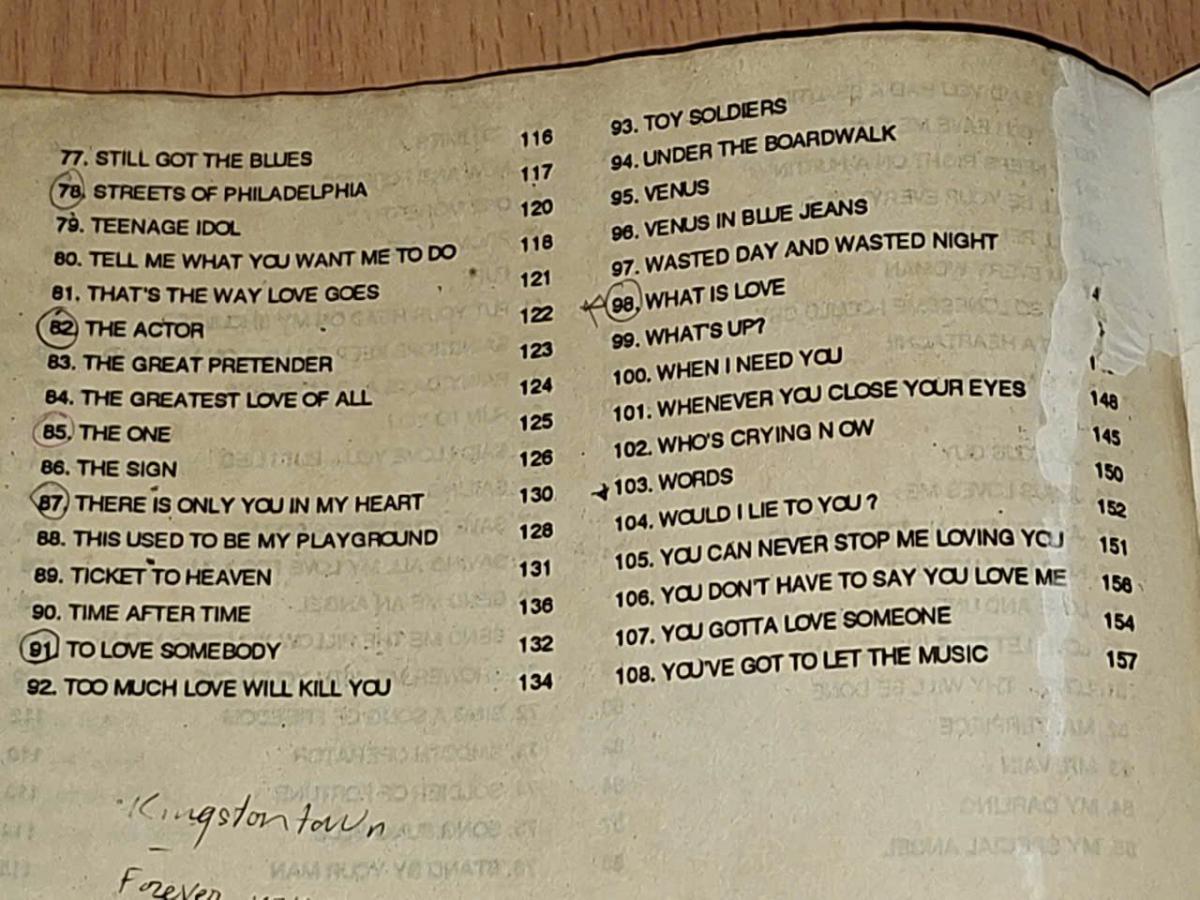 77. STILL GOT THE BLUES 116
78. STREETS OF PHILADELPHIA 117
79. TEENAGE IDOL 120
80. TELL ME WHAT YOU WANT ME TO DO 118
81. THAT'S THE WAY LOVE GOES 121
82 THE ACTOR 122
83. THE GREAT PRETENDER 123
84. THE GREATEST LOVE OF ALL 124
85. THE ONE 125
86. THE SIGN 126
87. THERE IS ONLY YOU IN MY HEART 130
88. THIS USED TO BE MY PLAYGROUND 128
89. TICKET TO HEAVEN 131
90. TIME AFTER TIME 136
91. TO LOVE SOMEBODY 132
92. TOO MUCH LOVE WILL KILL YOU 134
93. TOY SOLDIERS
94. UNDER THE BOARDWALK
95. VENUS
96. VENUS IN BLUE JEANS
97. WASTED DAY AND WASTED NIGHT
98. WHAT IS LOVE
99. WHAT'S UP?
100. WHEN I NEED YOU
101. WHENEVER YOU CLOSE YOUR EYES 148
102. WHO'S CRYING N OW 145
103. WORDS 150
104. WOULD I LIE TO YOU ? 152
105. YOU CAN NEVER STOP ME LOVING YOU 151
106. YOU DON'T HAVE TO SAY YOU LOVE ME 156
107. YOU GOTTA LOVE SOMEONE 154
108. YOU'VE GOT TO LET THE MUSIC 157
Kingston town
Forever